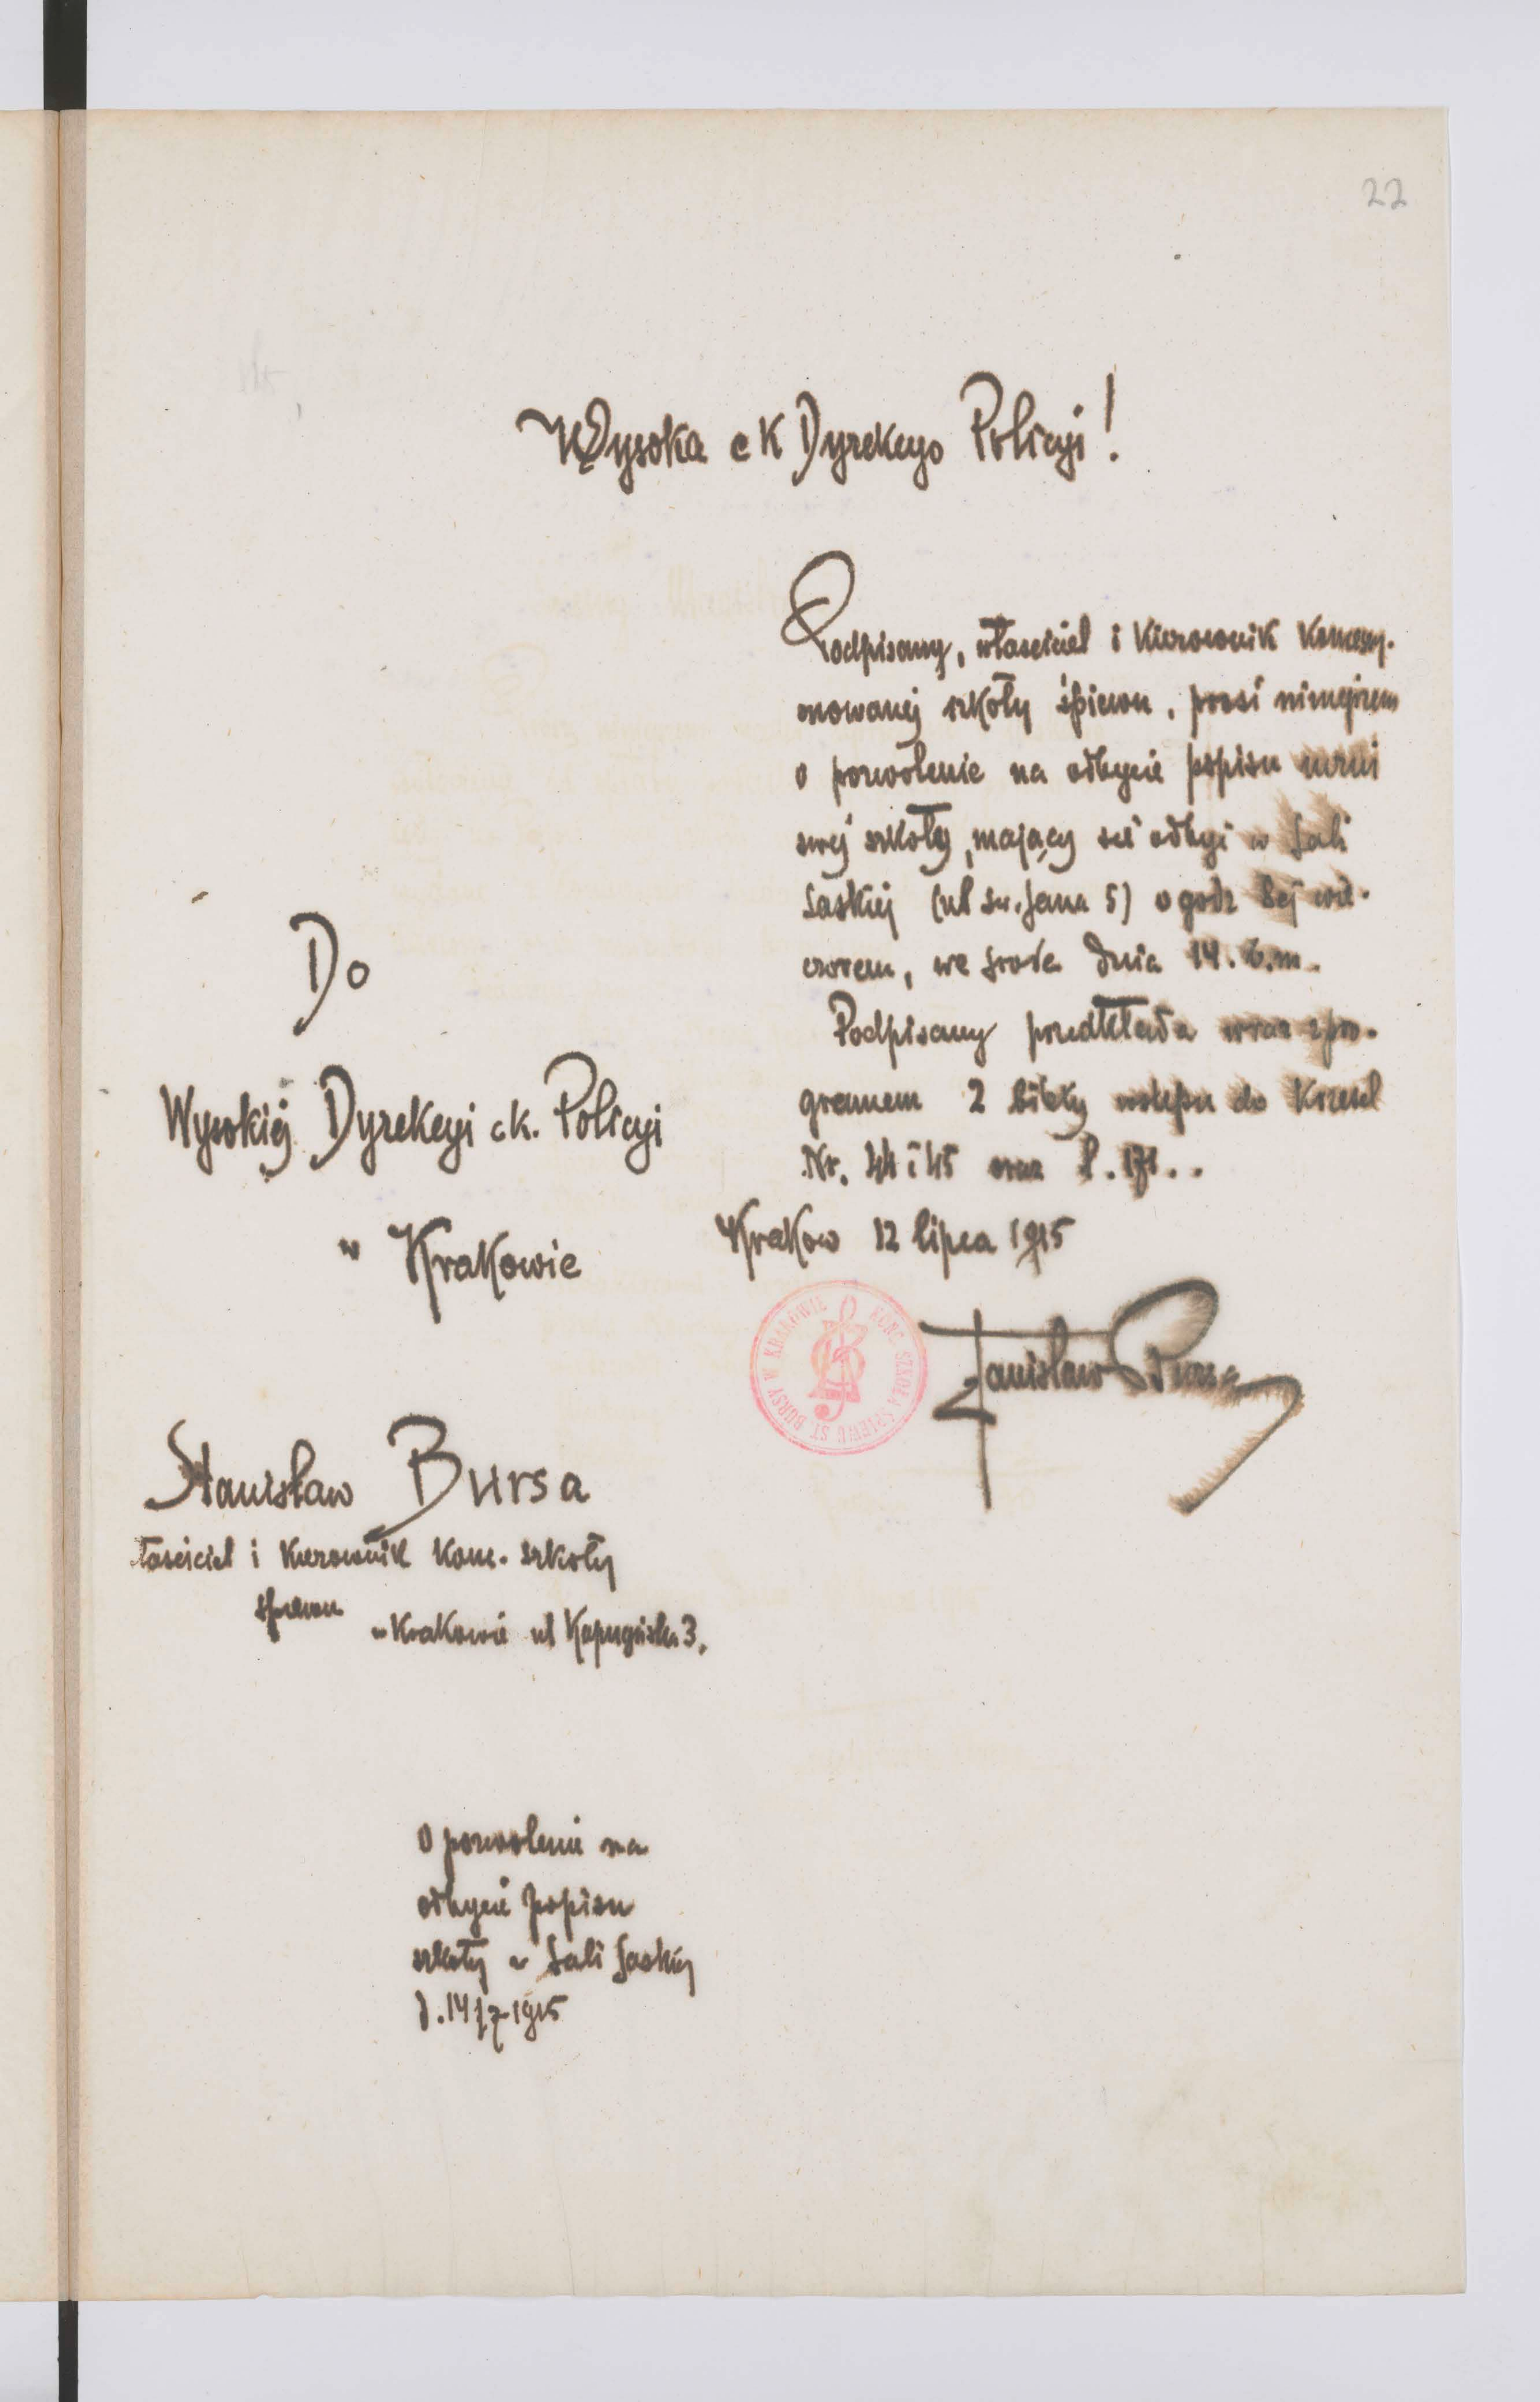 22
Wysoka c K Dyrekcyo Policyi!
Podpisany, właściciel i Kierownik Koncesy-
onowanej szkoły śpiewu, prosi niniejszem
o pozwolenie na odbycie popisu uczni
swej szkoły, mający się odbyć w Sali
Saskiej (ul św. Jana 5) o godz 8ej wie-
czorem, we środę dnia 14. b.m.
Podpisany przedkłada wraz z pro-
gramem 2 bilety wstępu do Krzeseł
Nr. 44 i 45 oraz
Kraków 12 lipca 1915
KONC. SZKOŁA ŚPIEWU ST. BURSY W KRAKOWIE
Stanisław Bursa
Do
Wysokiej Dyrekcyi c k. Policyi
w Krakowie
Stanisław Bursa
właściciel i Kierownik Konc. szkoły
śpiewu
w Krakowie ul Kapucyńska 3.
O pozwolenie na
odbycie popisu
szkoły w Sali Saskiej
d. 14/7 1915